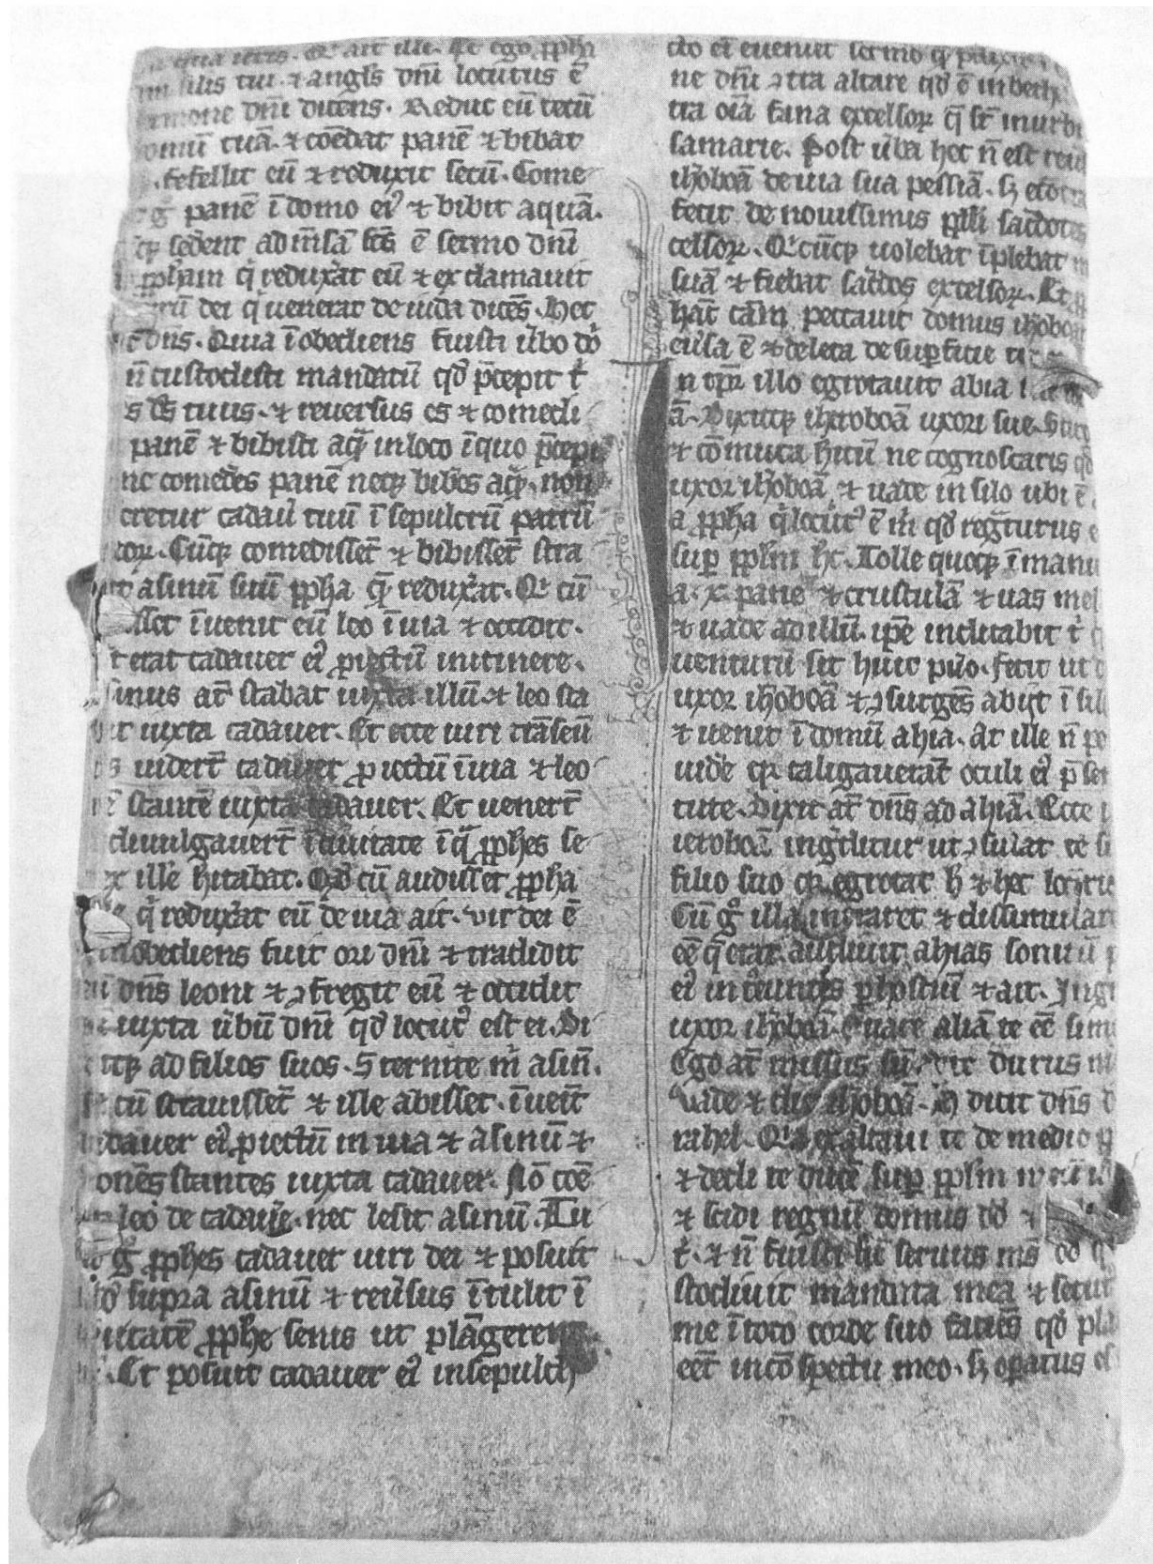 qua ieris. Qi ait ille. Et ego ꝓph̅a
silis tui. ⁊ angl̅s dn̅i locutus e̅
rmone dn̅i dicens. Reduc eu̅ tecu̅
omu̅ tua̅. ⁊ co̅edat pane̅ ⁊ bibat
. fefellit eu̅ ⁊ reduxit secu̅. Come
g° pane̅ i̅ domo ei⁹ ⁊ bibit aqua̅.
cꝫ sedent ad m̅sa̅ fc̅s e̅ sermo dn̅i
ꝓph̅am q̇ redux̾at eu̅ ⁊ exclamauit
ru̅ dei q̇ uenerat de iuda dice̅s. Hec
dn̅s. Quia i̅obediens fuisti u̾bo do̅
n̅ custodisti mandatu̅ qd̅ p̅cepit t̾
s ds̅ tuus. ⁊ reuersus es ⁊ comedi
pane̅ ⁊ bibisti aq̅ in loco i̅ quo p̅cepi
ne comedes pane̅ neqꝫ bib̾es aq̅. non
eretur cadau̾ tuu̅ i̅ sepulcru̅ patru̅
oꝝ. Cu̅qꝫ comedisset̅ ⁊ bibisset̅ stra
t asinu̅ suu̅ ꝓph̅a que̅ redux̾at. Qi cu̅
sset i̅uenit eu̅ leo i̅ uia ⁊ occidit.
t erat cadauer ei⁹ ꝓiectu̅ in itinere.
sinus at̅ stabat iuxta illu̅ ⁊ leo sta
t iuxta cadauer. Et ecce uiri tra̅seu̅
s uidert̅ cadauer ꝓiectu̅ i̅ uia ⁊ leo
e̅ stante̅ iuxta cadauer. Et uenert̅
diuulgauert̅ i̅ ciuitate i̅ q̅ ꝓphes se
x ille h̅itabat. Qd̅ cu̅ audisset ꝓph̅a
q̇ redux̾at eu̅ de uia ait. vir dei e̅
inobediens fuit ori dn̅i ⁊ tradidit
dn̅s leoni ⁊ ꝯfregit eu̅ ⁊ occidit
iuxta u̾bu̅ dn̅i qd̅ locut⁹ est ei. Di
itqꝫ ad filios suos. Sternite m̾ asin̅.
cu̅ strauisset̅ ⁊ ille abisset. i̅ueit̅
dauer ei⁹ ꝓiectu̅ in uia ⁊ asinu̅ ⁊
one̅s stantes iuxta cadauer. No̅ coe̅
leo de cadau̾e. nec lesit asinu̅. Tu
g° ꝓphes cadauer uiri dei ⁊ posuit
supra asinu̅ ⁊ reu̾sus i̅tulit i̅
uitate̅ ꝓphe senis ut pla̅geret
. Et posuit cadauer ei⁹ in sepulch
cto ei̅ eueniet sermo
ne dn̅i ꝯtra altare qd̅ e̅ in beth
tra oi̅a fana excelsoꝝ q̅ st̅ in urbi
samarie. Post u̾ba hec n̅ est
ih̾oboa̅ de uia sua pessi̅a. sꝫ
fecit de nouissimis ppl̅i sac̾dotes
celsoꝝ. Qicu̅qꝫ uolebat i̅plebat
sua̅ ⁊ fiebat sac̾dos excelsoꝝ. Et
ha̅c ca̅m peccauit domus ih̾oboa̅
e̅ ⁊ deleta de sup̲ficie
n tp̅r illo egrotauit abia
a̅. Dixitqꝫ iheroboa̅ uxori sue.
⁊ co̅muta h̅itu̅ ne cognoscaris qd̅
uxor ih̾oboa̅ ⁊ uade in silo ubi e̅
a ꝓph̅a q̇ locut⁹ e̅ m̾ qd̅ regnaturus
sup̲ ppl̅m hc̅. Tolle quoqꝫ i̅ manu
a. x. pane̅ ⁊ crustula̅ ⁊ uas mel
⁊ uade ad illu̅. ip̅e indicabit t̾
uenturu̅ sit huic pu̾o. fecit ut
uxor ih̾oboa̅ ⁊ ꝯsurge̅s abijt i̅ sil
⁊ uenit i̅ domu̅ ahia. At ille n̅ po
uide̾ qꝛ caligauerat̅ oculi ei⁹ p̅ se
tute. Dixit at̅ dn̅s ad ahia̅. Ecce
ieroboa̅ ingditur ut ꝯsulat te
filio suo qꝛ egrotat h̅ ⁊ hec
Cu̅ g° illa intraret ⁊ dissimular
ee̅ q̅ erat. audiuit ahias sonitu̅
ei⁹ intreuntis p̲ hostiu̅ ⁊ ait. Ing
uxor ih̾oboa̅. Quare alia̅ te ee̅ sim
Ego at̅ missus su̅ durus
Vade ⁊ dic ih̾oboa̅. H̅ dicit dn̅s
rahel. Qia exaltaui te de medio
⁊ dedi te duce̅ sup̲ ppl̅m
⁊ scidi regnu̅ domus dd̅ ⁊
t̾. ⁊ n̅ fuisti sic̅ seruus ms̅ dd̅
stodiuit mandata mea ⁊ secut
me i̅ toto corde suo facie̅s qd̅ pla
eet̅ in co̅spectu meo. sꝫ op̲atus